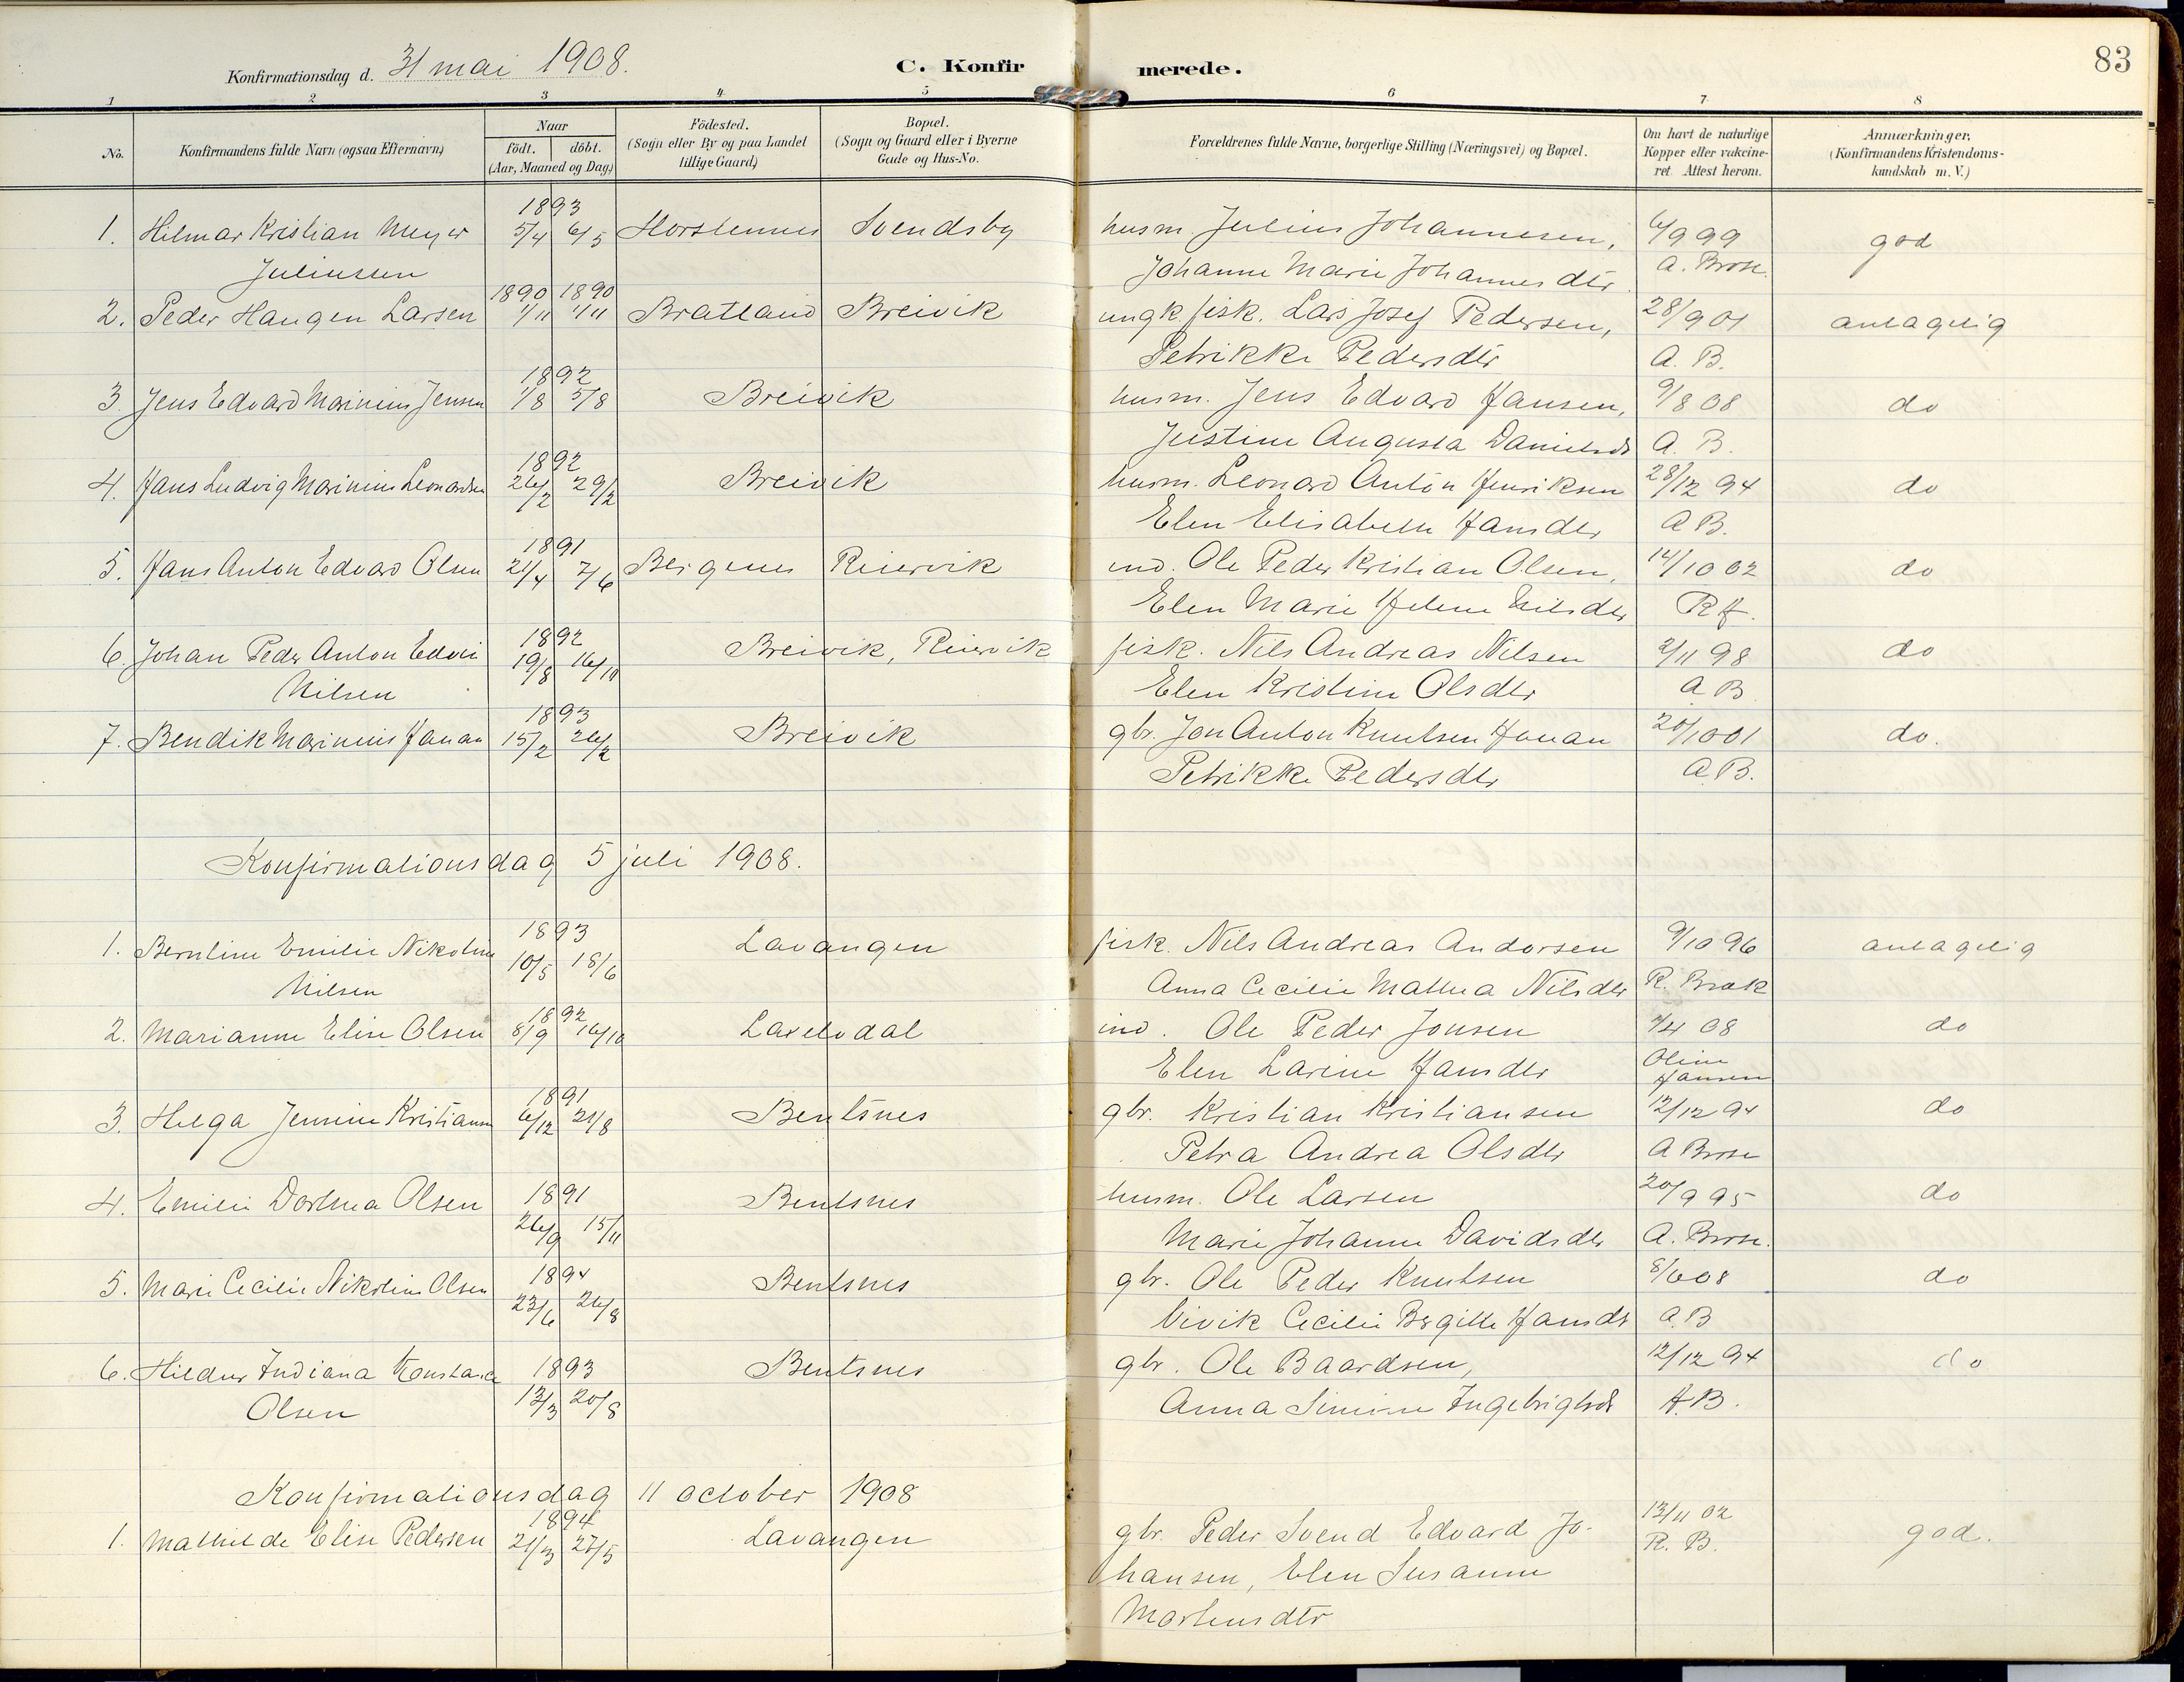 83
Konfirmationsdag d. 31 mai 1908. C. Konfirmerede.
1 2 3 4 5 6 7 8
No. Konfirmandens fulde Navn (ogsaa Efternavn) Naar födt. döbt. (Aar, Maaned og Dag) Födested. (Sogn eller By og paa Landet tillige Gaard) Bopæl. (Sogn og Gaard eller i Byerne Gade og Hus-No. Forældrenes fulde Navne, borgerlige Stilling (Næringsvei) og Bopæl. Om havt de naturlige Kopper eller vakcineret. Attest herom. Anmærkninger, (Konfirmandens Kristendomskundskab m. V.)
1893
1. Hilmar Kristian Meyer 5/4 6/5 Horstennes Svendsby husm. Julius Johannesen, 6/9 99 god
Juliussen Johanne Marie Johannesdtr. A. Brose.
1890 1890
2. Peder Haugen Larsen 1/11 1/11 Bratland Breivik ungk. fisk. Lars Josef Pedersen, 28/9 01 antagelig
Petrikke Pedersdtr A. B.
1892
3. Jens Edvard Marinius Jensen 1/8 5/8 Breivik husm. Jens Edvard Hansen, 9/8 08 do
Justine Augusta Danielsdt A. B.
1892
4. Hans Ludvig Marinius Leonardsen 26/2 29/2 Breivik husm. Leonard Anton Henriksen 28/12 94 do
Elen Elisabeth Hansdtr A B.
1891
5. Hans Anton Edvard Olsen 21/4 7/6 Bergenes Reiervik ind. Ole Peder Kristian Olsen, 14/10 02 do
Elen Marie Helene Nilsdtr R H.
1892
6. Johan Peder Anton Edvin 19/8 16/10 Breivik, Reiervik fisk. Nils Andreas Nilsen 2/11 98 do
Nilsen Elen Kristine Olsdtr A B
1893
7. Bendik Marinius Hanan 15/2 26/2 Breivik gbr. Jon Anton Knutsen Hanan 20/10 01 do.
Petrikke Pedersdtr A B.
Konfirmationsdag 5 juli 1908.
1893
1. Berntine Emilie Nikoline 10/5 18/6 Lavangen fisk. Nils Andreas Andorsen 9/10 96 antagelig
Nilsen Anna Cecilie Mathea Nilsdtr R. Brok
1892
2. Marianne Elise Olsen 8/9 16/10 Lakselvdal ind. Ole Peder Jonsen 7/4 08 do
Elen Larine Hansdtr Oline Hansen
1891
3. Helga Jensine Kristiansen 6/12 21/8 Bentsnes gbr. Kristian Kristiansen 12/12 94 do
Petra Andrea Olsdtr A Brose
4. Emilie Dorthea Olsen 1891 Bentsnes husm. Ole Larsen 20/9 95 do
26/9 15/11 Marie Johanne Davidsdtr A. Brose.
5. Marie Cecilie Nikoline Olsen 1894 Bentsnes gbr. Ole Peder Knutsen 8/6 08 do
23/6 26/8 Vivik Cecilie Bergitte Hansdt A. B
6. Hildur Indiana Konstance 1893 Bentsnes gbr. Ole Baardsen, 12/12 94 do
Olsen 13/3 20/8 Anna Simine Ingebrigtsdt A. B.
Konfirmationsdag 11 october 1908
1894
1. Mathilde Elise Pedersen 21/3 27/5 Lavangen gbr. Peder Svend Edvard Jo- 13/11 02 god.
hansen, Elen Susanne R. B.
Mortensdtr